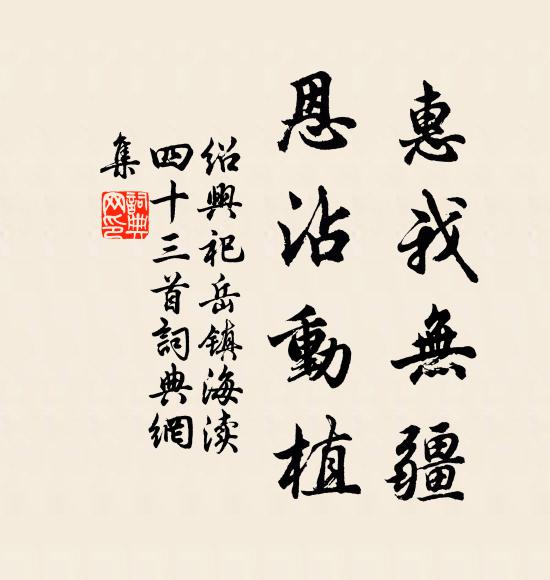 惠我無疆
恩沾動植
紹興祀岳鎮海渎
四十三首詞典網
集
詞典網印